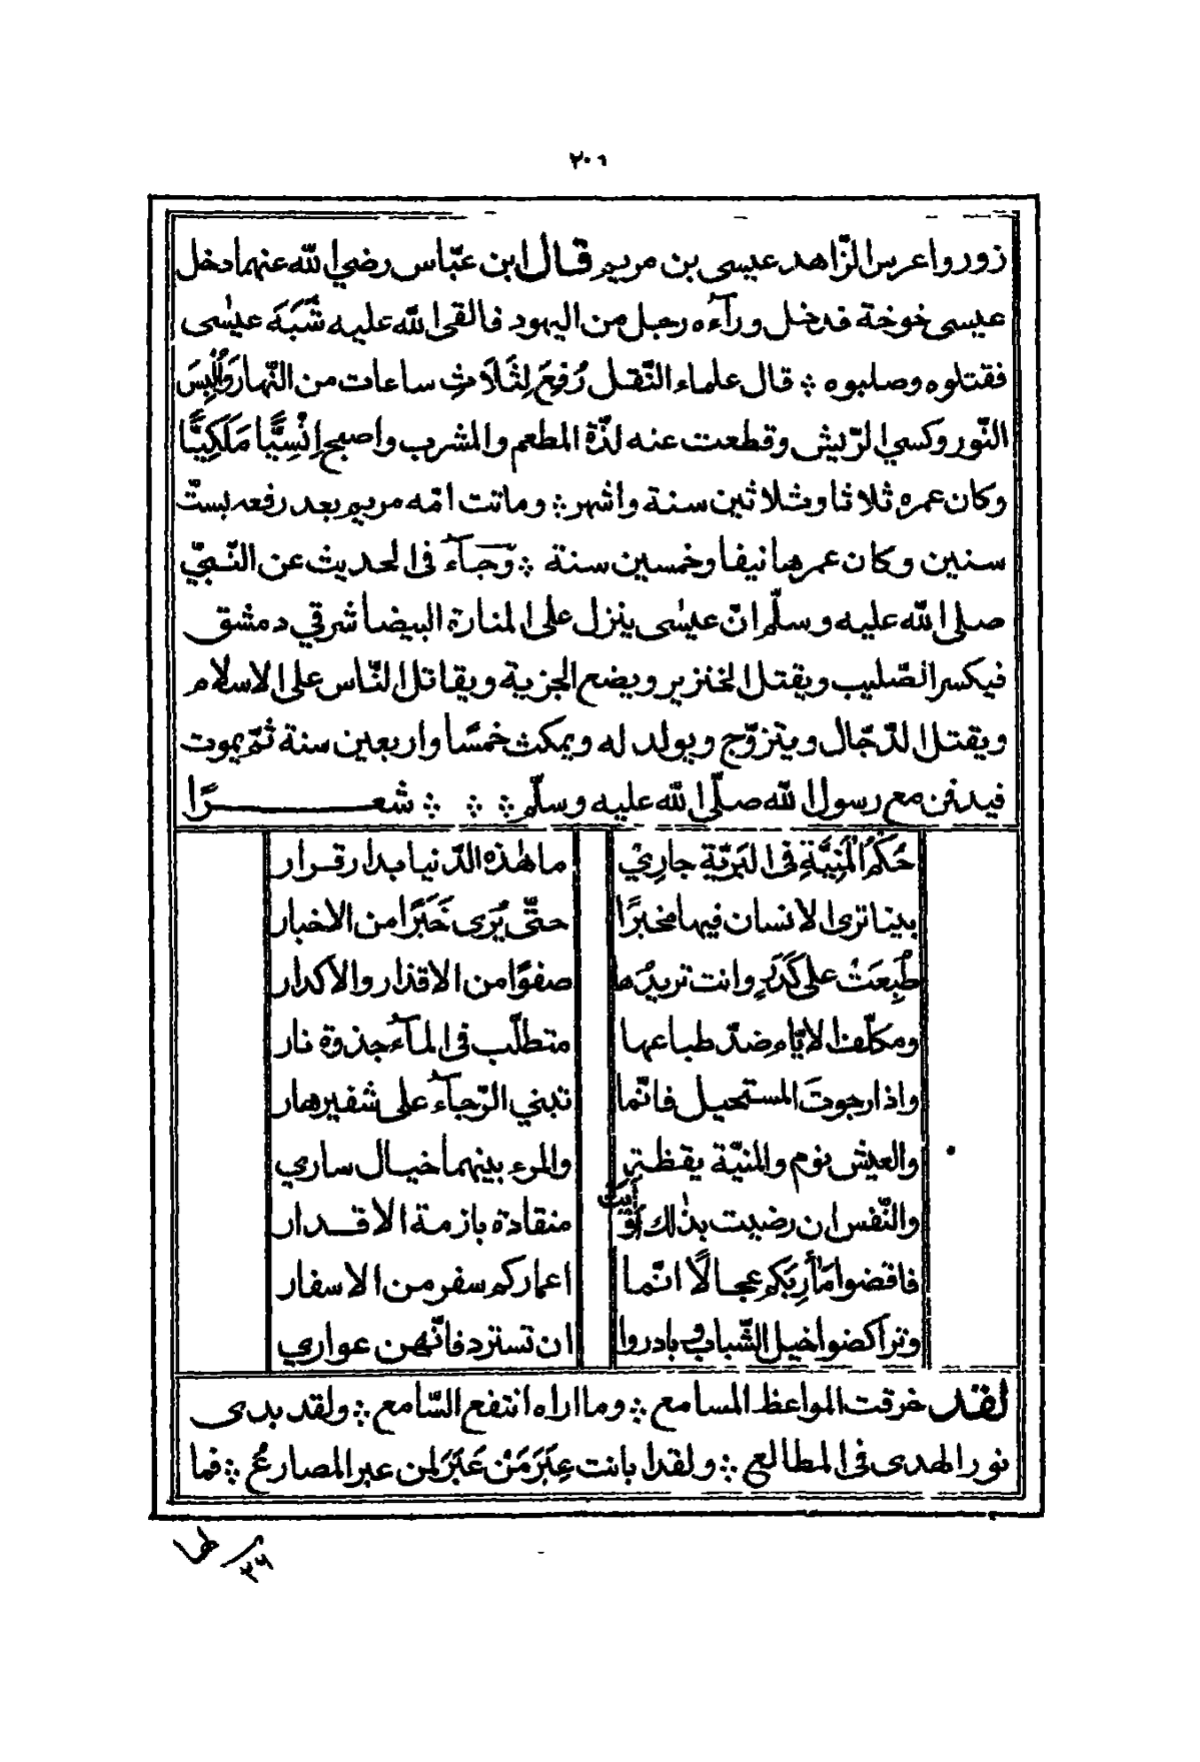 ٢٠٦
زوروا عرس الزّاهد عيسى بن مريم قال ابن عبّاس رضي الله عنهما دخل
عيسى خوخة فدخل ورآءه رجل من اليهود فالقى الله عليه شَبَهَ عيسٰى
فقتلوه وصلبوه ؞ قال علماء النّقل رُفِعَ لِثَلَاثِ ساعات من النّهار وَاُلْبِسَ
النّور وكسي الرّيش وقطعت عنه لذّة المطعم والمشرب واصبح اِنْسِيًّا مَلَكِيًّا
وكان عمره ثلاثا وثلاثين سنة واشهر ؞ وماتت امّه مريم بعد رفعه بستّ
سنين وكان عمرها نيفا وخمسين سنة ؞ وَجَآءَ فى الحديث عن النّبيّ
صلى الله عليه وسلّم انّ عيسٰى ينزل على المنارة البيضا شرقي دمشق
فيكسر الصّليب ويقتل الخنزير ويضع الجزية ويقاتل النّاس على الاسلام
ويقتل الدّجّال ويتزوّج ويولد له ويمكث خمسًا واربعين سنة ثمّ يموت
فيدفن مع رسول الله صلّى الله عليه وسلّم ؞ ؞ ؞ شعــــرًا
حُكْمُ الْمَنِيَّةِ فى البَرِيّةِ جارِيْ ما هٰذه الدّنيا بدار قرار
بينا ترى الانسان فيها مخبرًا حتّى يُرَى خَبَرًا من الاخبار
طُبِعَتْ على كَدَرٍ وانت تريدُها صفوًا من الاقذار والاكدار
ومكلّف الايّام ضدّ طباعها متطلّب فى المآء جذوة نار
واذا رجوتَ المستحيل فانّما تبني الرّجآء على شفير هار
والعيش نوم والمنيّة يقظة والمرء بينهما خيال ساري
والنّفس ان رضيت بذلك اَوْ اَبَتْ منقادة بازمة الاقدار
فاقضوا مَاٰرِبَكم عجالًا انّما اعماركم سفر من الاسفار
وتراكضوا خيل الشّباب وبادروا ان تسترد فانّهن عواري
لقد خرقت المواعظ المسامع ؞ وما اراه انتفع السّامع ؞ ولقد بدى
نور الهدى فى المطالع ؞ ولقد بانت عِبَر مَنْ غَبَرَ لمن عبر المصارع ؞ فما
لها
٢٦